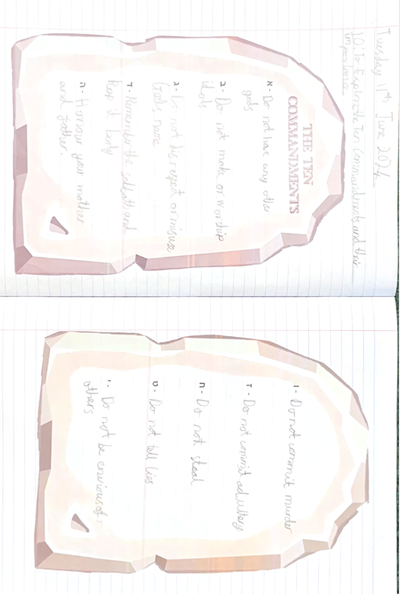 Tuesday 11th June 2024
L.O: To Explore the Ten Commandments and their
importance.
THE TEN
COMMANDMENTS
א - Do not have any other
gods
ב - Do not make or worship
idols
ג - Do not disrespect or misuse
God's name
ד - Remember the sabbath and
keep it holy
ה - Honour your mother
and father.
ו - Do not commit murder
ז - Do not commit adultery
ח - Do not steal
ט - Do not tell lies
י - Do not be envious of
others